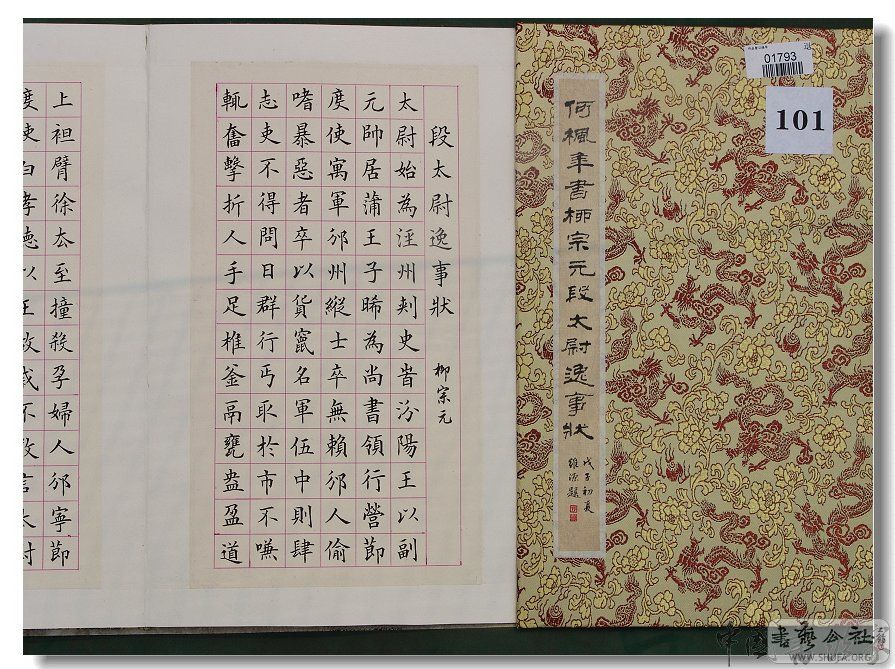 01793
101
何楓年書柳宗元段太尉逸事狀
戊子初夏
題
段太尉逸事狀 柳宗元
太尉始為涇州刺史旹汾陽王以副
元帥居蒲王子晞為尚書領行營節
度使寓軍邠州縱士卒無賴邠人偷
嗜暴惡者卒以貨竄名軍伍中則肆
志吏不得問日群行丐取於市不嗛
輒奮擊折人手足椎釜鬲甕盎盈道
上袒臂徐去至撞殺孕婦人邠寧節
度使白孝德以王故戚不敢言太尉
中国書藝公社
WWW.SHUFA.ORG